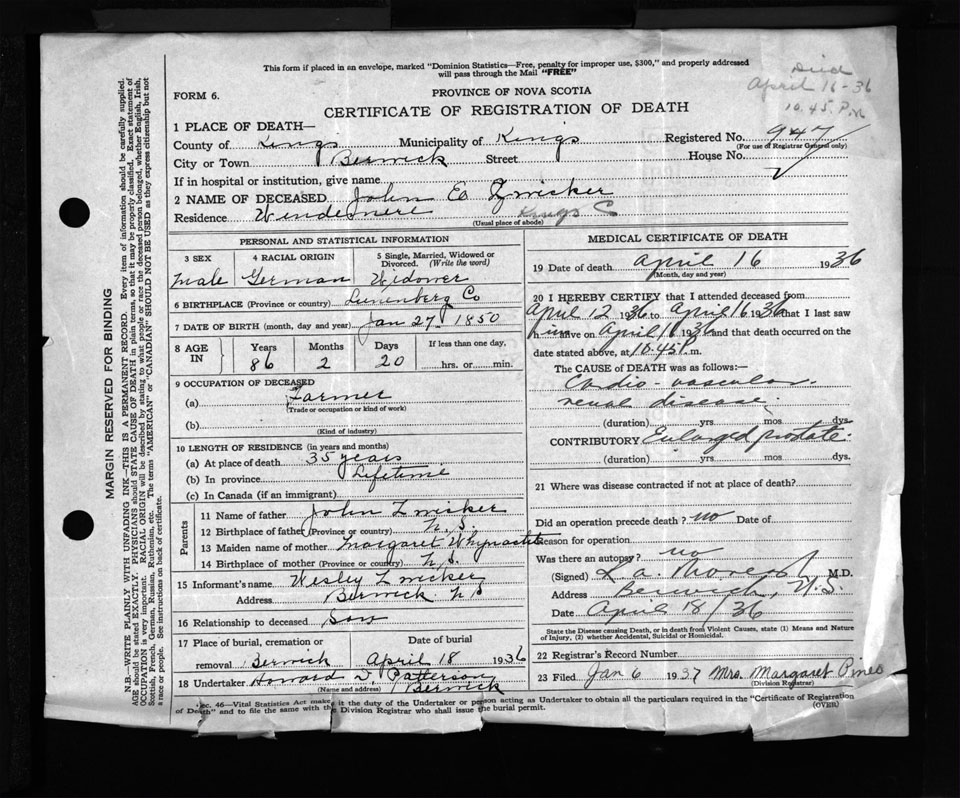 This form if placed in an envelope, marked "Dominion Statistics—Free, penalty for improper use, $300," and properly addressed
will pass through the Mail "FREE"
Died
April 16-36
10.45 P.M
FORM 6.
PROVINCE OF NOVA SCOTIA
CERTIFICATE OF REGISTRATION OF DEATH
1 PLACE OF DEATH—
County of Kings Municipality of Kings Registered No. 947
(For use of Registrar General only)
City or Town Berwick Street House No.
If in hospital or institution, give name
2 NAME OF DECEASED John Ed Zwicker
Residence Windermere Kings C
(Usual place of abode)
PERSONAL AND STATISTICAL INFORMATION
3 SEX 4 RACIAL ORIGIN 5 Single, Married, Widowed or Divorced. (Write the word)
male German Widower
6 BIRTHPLACE (Province or country) Lunenberg Co
7 DATE OF BIRTH (month, day and year) Jan 27 1850
8 AGE IN Years Months Days If less than one day,
86 2 20 hrs. or min.
9 OCCUPATION OF DECEASED
(a) Farmer
(Trade or occupation or kind of work)
(b)
(Kind of industry)
10 LENGTH OF RESIDENCE (in years and months)
(a) At place of death 35 years
(b) In province Lifetime
(c) In Canada (if an immigrant)
Parents
11 Name of father John Zwicker
12 Birthplace of father (Province or country) N.S.
13 Maiden name of mother Margaret
14 Birthplace of mother (Province or country) N.S.
15 Informant's name Wesley Zwicker
Address Berwick NS
16 Relationship to deceased Son
17 Place of burial, cremation or Date of burial
removal Berwick April 18 1936
18 Undertaker Howard D. Patterson
(Name and address) Berwick
MEDICAL CERTIFICATE OF DEATH
19 Date of death April 16 1936
(Month, day and year)
20 I HEREBY CERTIFY that I attended deceased from
April 12 1936 to April 16 1936 that I last saw
him alive on April 16 1936 and that death occurred on
date stated above, at 10.45 P. m.
The CAUSE OF DEATH was as follows:—
Cardio-vascular
renal disease.
(duration) yrs mos dys.
CONTRIBUTORY Enlarged prostate.
(duration) yrs mos dys.
21 Where was disease contracted if not at place of death?
Did an operation precede death? no Date of
Reason for operation
Was there an autopsy? no
(Signed) M.D.
Address Berwick, N.S.
Date April 18/36
State the Disease causing Death, or in death from Violent Causes, state (1) Means and Nature
of Injury, (2) whether Accidental, Suicidal or Homicidal.
22 Registrar's Record Number
23 Filed Jan 6 1937 Mrs. Margaret
(Division Registrar)
Sec. 46—Vital Statistics Act make it the duty of the Undertaker or person acting as Undertaker to obtain all the particulars required in the "Certificate of Registration
of Death" and to file the same with the Division Registrar who shall issue the burial permit. (OVER)
MARGIN RESERVED FOR BINDING
N.B.—WRITE PLAINLY WITH UNFADING INK—THIS IS A PERMANENT RECORD. Every item of information should be carefully supplied.
AGE should be stated EXACTLY. PHYSICIANS should STATE CAUSE OF DEATH in plain terms, so that it may be properly classified. Exact statement of
OCCUPATION is very important. RACIAL ORIGIN will be described by stating to what people or race the deceased person belonged, whether English, Irish,
Scottish, French, German, Russian, Ruthenian, etc. The terms "AMERICAN" or "CANADIAN" SHOULD NOT BE USED as they express citizenship but not
a race or people. See instructions on back of certificate.